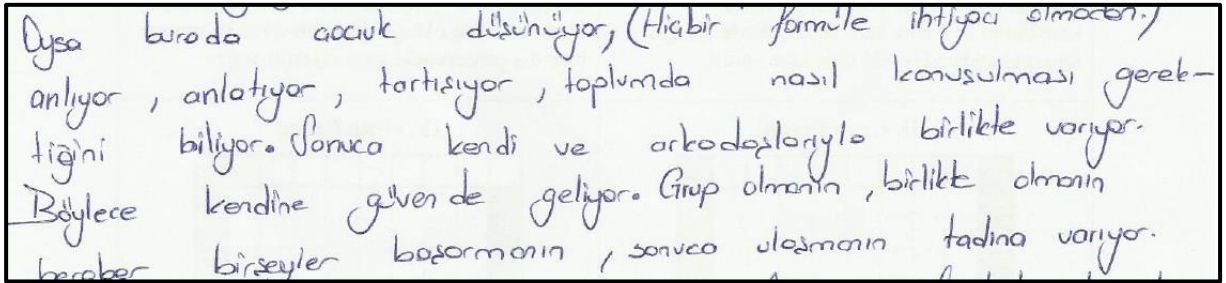 Oysa burada çocuk düşünüyor, (Hiçbir formüle ihtiyacı olmadan.)
anlıyor, anlatıyor, tartışıyor, toplumda nasıl konuşulması gerek-
tiğini biliyor. Sonuca kendi ve arkadaşlarıyla birlikte varıyor.
Böylece kendine güven de geliyor. Grup olmanın, birlikte olmanın
beraber birşeyler başarmanın, sonuca ulaşmanın tadına varıyor.